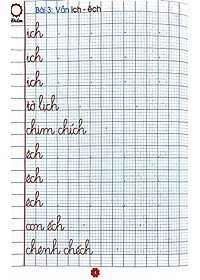 Bài 3: Vần ich - êch
Điểm
ich
ich
ich
tờ lịch
chim chích
êch
êch
êch
con ếch
chênh chếch